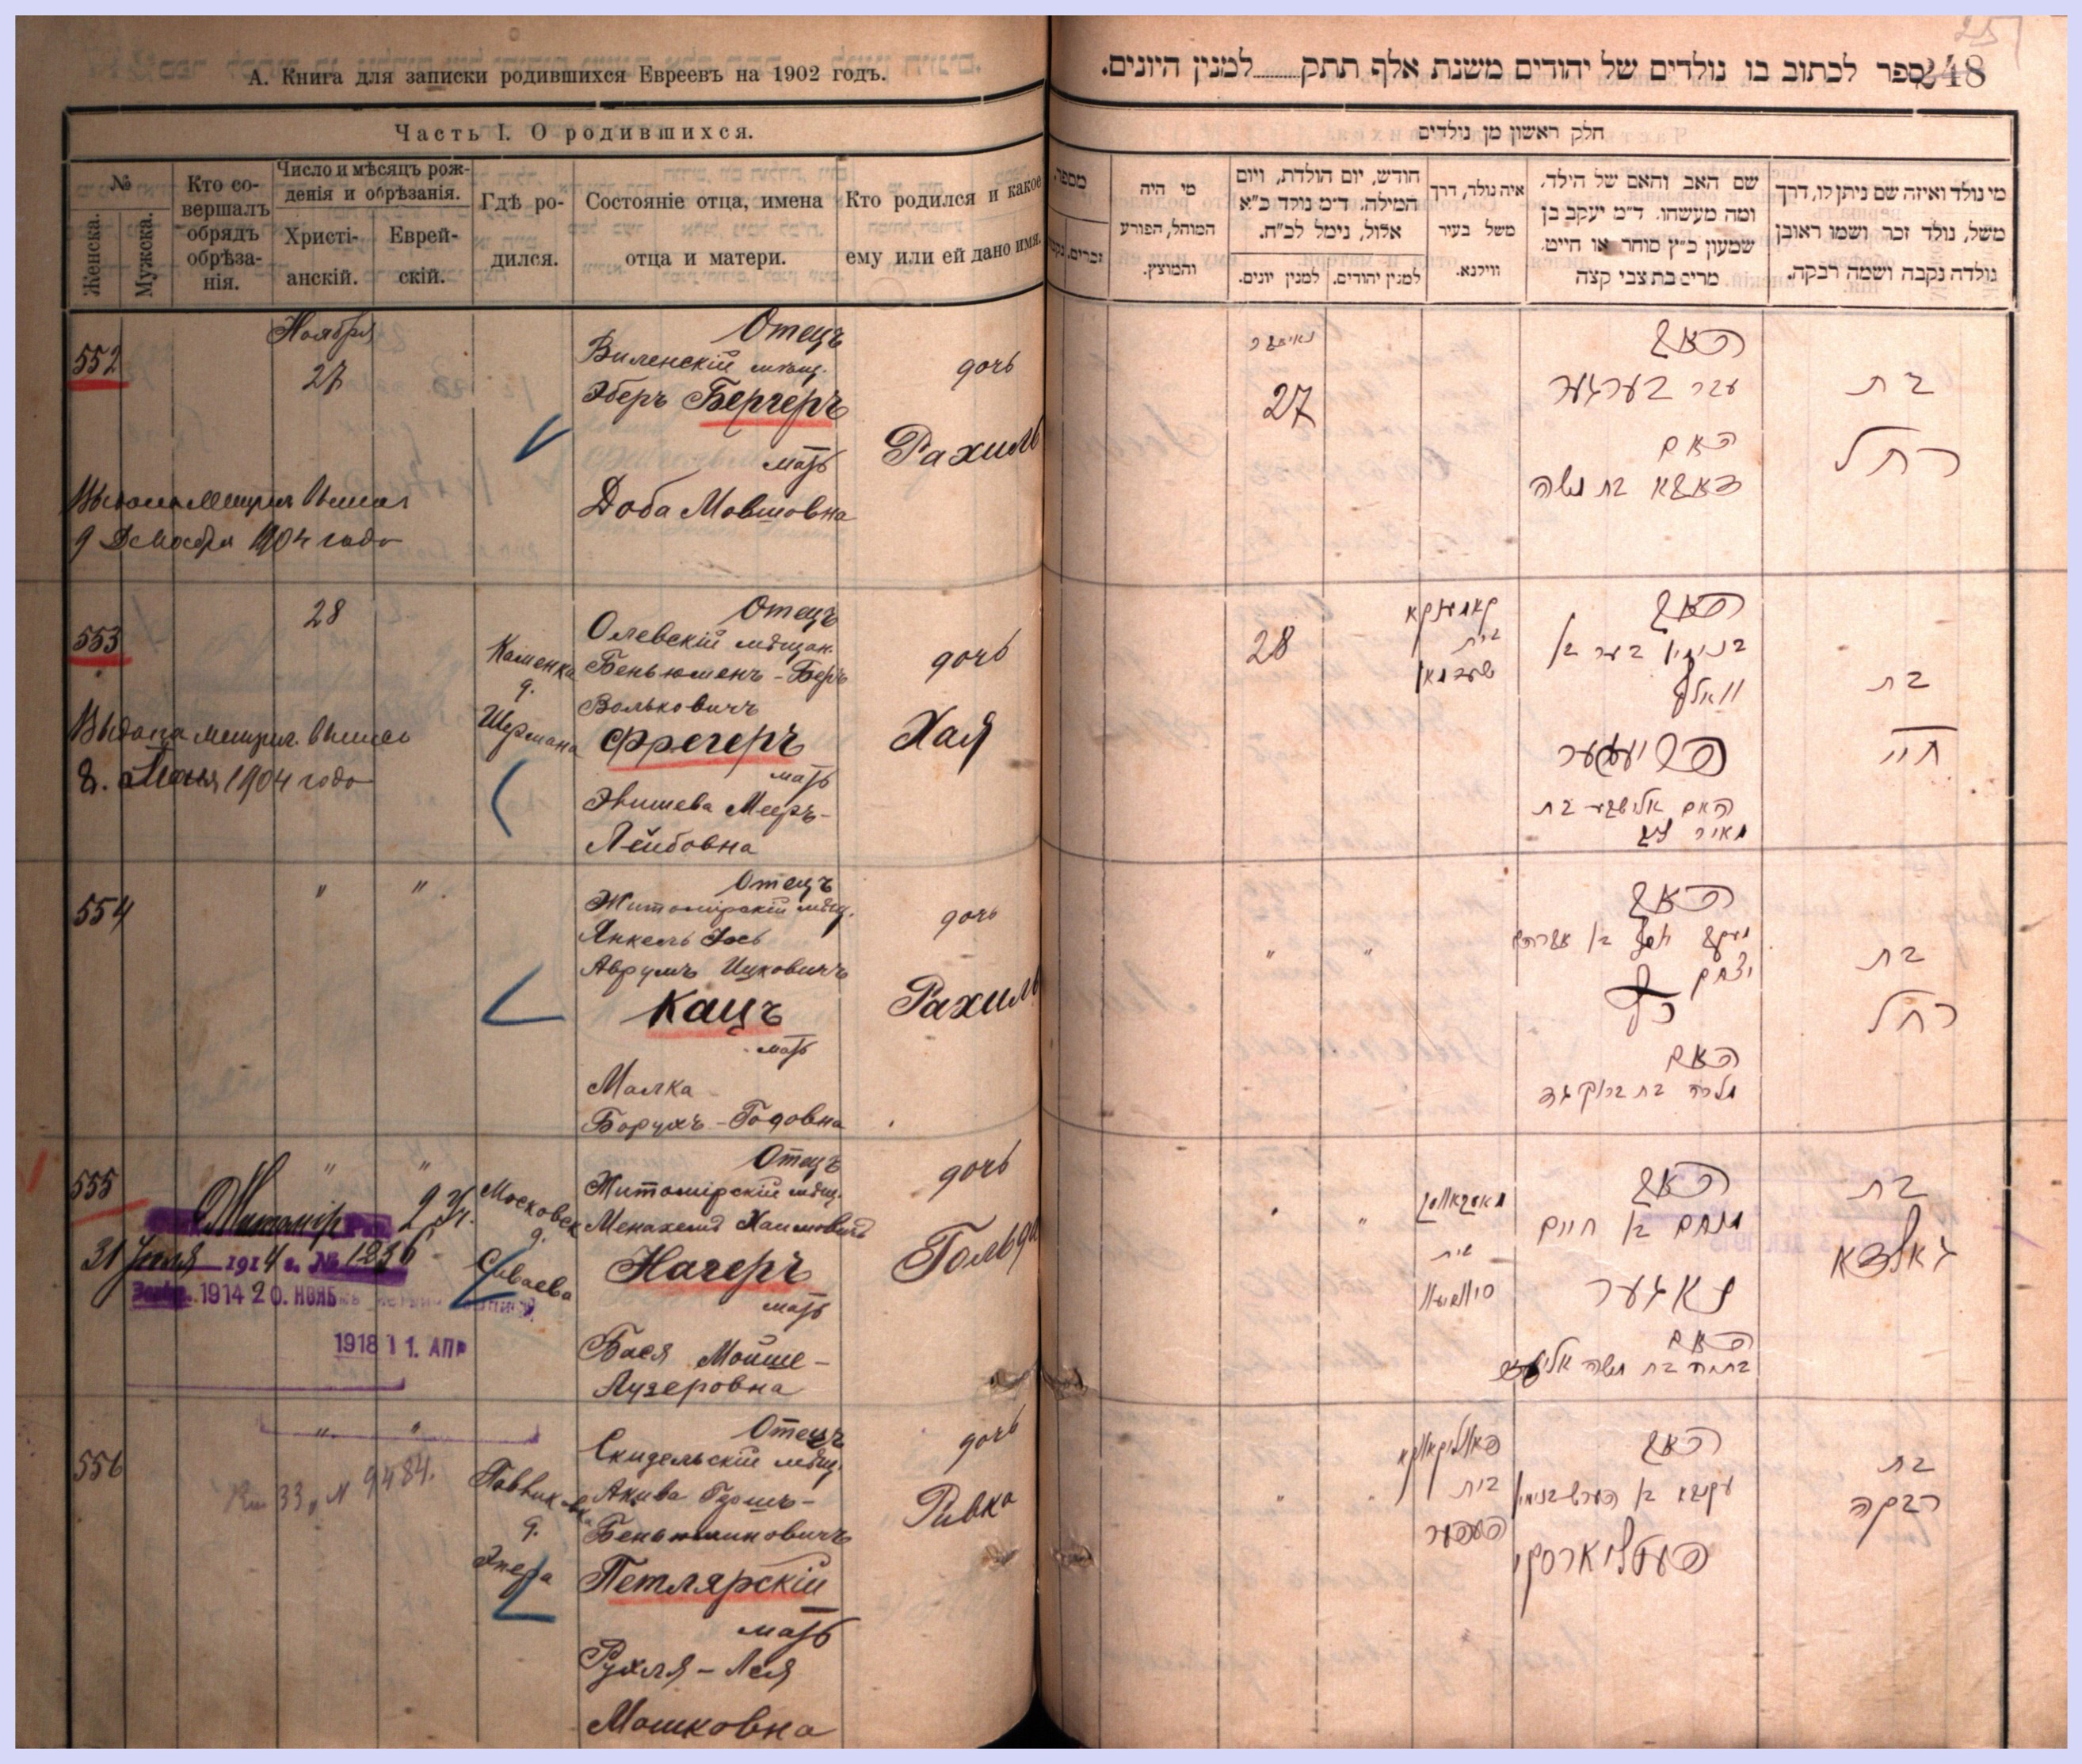 А. Книга для записки родившихся Евреевъ на 1902 годъ.
Часть I. О родившихся.
№
Женска.
Мужска.
Кто со-
вершалъ
обрядъ
обрѣза-
нія.
Число и мѣсяцъ рож-
денія и обрѣзанія.
Христі-
анскій.
Еврей-
скій.
Гдѣ ро-
дился.
Состояніе отца, имена
отца и матери.
Кто родился и какое
ему или ей дано имя.
552
Ноября
27
Отецъ
Виленскій мѣщ.
Эберъ Бергеръ
мать
Доба Мовшовна
дочь
Рахиль
9 Декабря 1904 года
553
28
Каменка
д.
Шермана
Отецъ
Олевскій мѣщан.
Беньюменъ-Беръ
Вольковичъ
Фрегеръ
мать
Элишева Мееръ-
Лейбовна
дочь
Хая
8. Июня 1904 года
554
" "
Отецъ
Житомірскій мѣщ.
Янкель Іось
Аврумъ Ицковичъ
Кацъ
мать
Малка
Борухъ-Годовна
дочь
Рахиль
555
" "
Житомір
31 Іюля 1914 г. № 1236
1914 20. НОЯБ
1918 11. АПР
Московск
д.
Сиваева
Отецъ
Житомірскій мѣщ.
Менахемъ Хаимовичъ
Нагеръ
мать
Бася Мойше-
Лузеровна
дочь
Гольда
556
" "
33, № 9484.
д.
Отецъ
Скидельскій мѣщ.
Акива Гершъ-
Беньюминовичъ
Петлярскій
мать
Рухля-Лея
Мошковна
дочь
Ривка
248
ספר לכתוב בו נולדים של יהודים משנת אלף תתק......למנין היונים.
חלק ראשון מן נולדים
מספר.
זכרים.
מי היה
המוהל, הפורע
והמוצץ.
חודש, יום הולדת, ויום
המילה. ד״מ נולד כ״א
אלול, נימל לכ״ח.
למנין יהודים.
למנין יונים.
איה נולד, דרך
משל בעיר
ווילנא.
שם האב והאם של הילד.
ומה מעשהו. ד״מ יעקב בן
שמעון כ״ץ סוחר או חייט.
מרים בת צבי קצה
מי נולד ואיזה שם ניתן לו, דרך
משל, נולד זכר ושמו ראובן
נולדה נקבה ושמה רבקה.
27
האב
עבר בערגער
האם
דאבא בת משה
בת
רחל
28
קאמענקא
בית
שערמאן
האב
בנימין בער בן
וואלף
פרעגער
האם אלישבע בת
מאיר ליב
בת
חיי
" "
האב
יעקב יוסף בן אברהם
יצחק
כץ
האם
מלכה בת ברוך גד
בת
רחל
" "
בית
האב
מנחם בן חיים
נאגער
האם
בת
גאלדא
" "
בית
האב
עקיבא בן הערש בנימין
פעטליארסקי
בת
רבקה